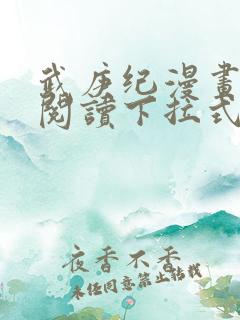 武庚纪漫畫
閱讀下拉式
夜香不香
未經同意禁止轉載